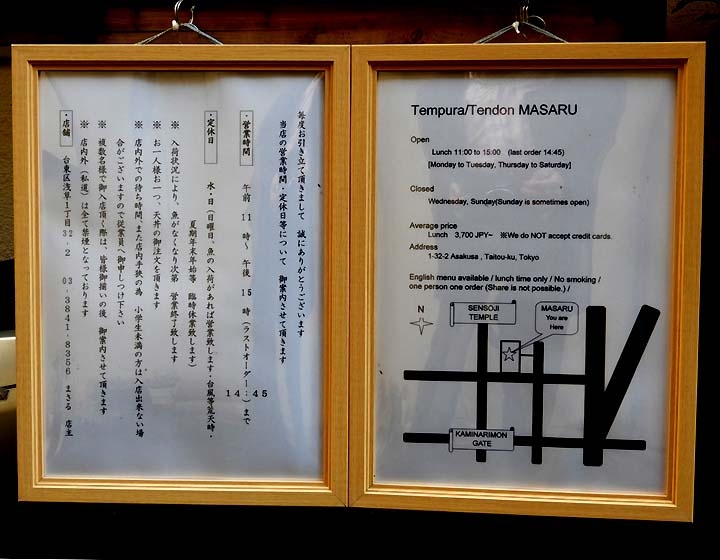 毎度お引き立て頂きまして　誠にありがとうございます
当店の営業時間・定休日等について　御案内させて頂きます
・営業時間　午前　11　時～　午後　15　時（ラストオーダー：）まで
14　45
・定休日　水・日（日曜日、魚の入荷があれば営業致します・台風等荒天時・
夏期年末年始等　臨時休業致します）
※　入荷状況により、魚がなくなり次第　営業終了致します
※　お一人様お一つ、天丼の御注文を頂きます
※　店内外での待ち時間、また店内手狭の為　小学生未満の方は入店出来ない場
合がございますので従業員へ御申しつけ下さい
※　複数名様で御入店頂く際は、皆様御揃いの後　御案内させて頂きます
※　店内外（私道）は全て禁煙となっております
・店舗　台東区浅草1丁目32.2　03.3841.8356　まさる　店主
Tempura/Tendon MASARU
Open
Lunch 11:00 to 15:00 (last order 14:45)
[Monday to Tuesday, Thursday to Saturday]
Closed
Wednesday, Sunday(Sunday is sometimes open)
Average price
Lunch 3,700 JPY~ ※We do NOT accept credit cards.
Address
1-32-2 Asakusa , Taitou-ku, Tokyo
English menu available / lunch time only / No smoking /
one person one order (Share is not possible.) /
N
SENSOJI
TEMPLE
MASARU
You are
Here
KAMINARIMON
GATE